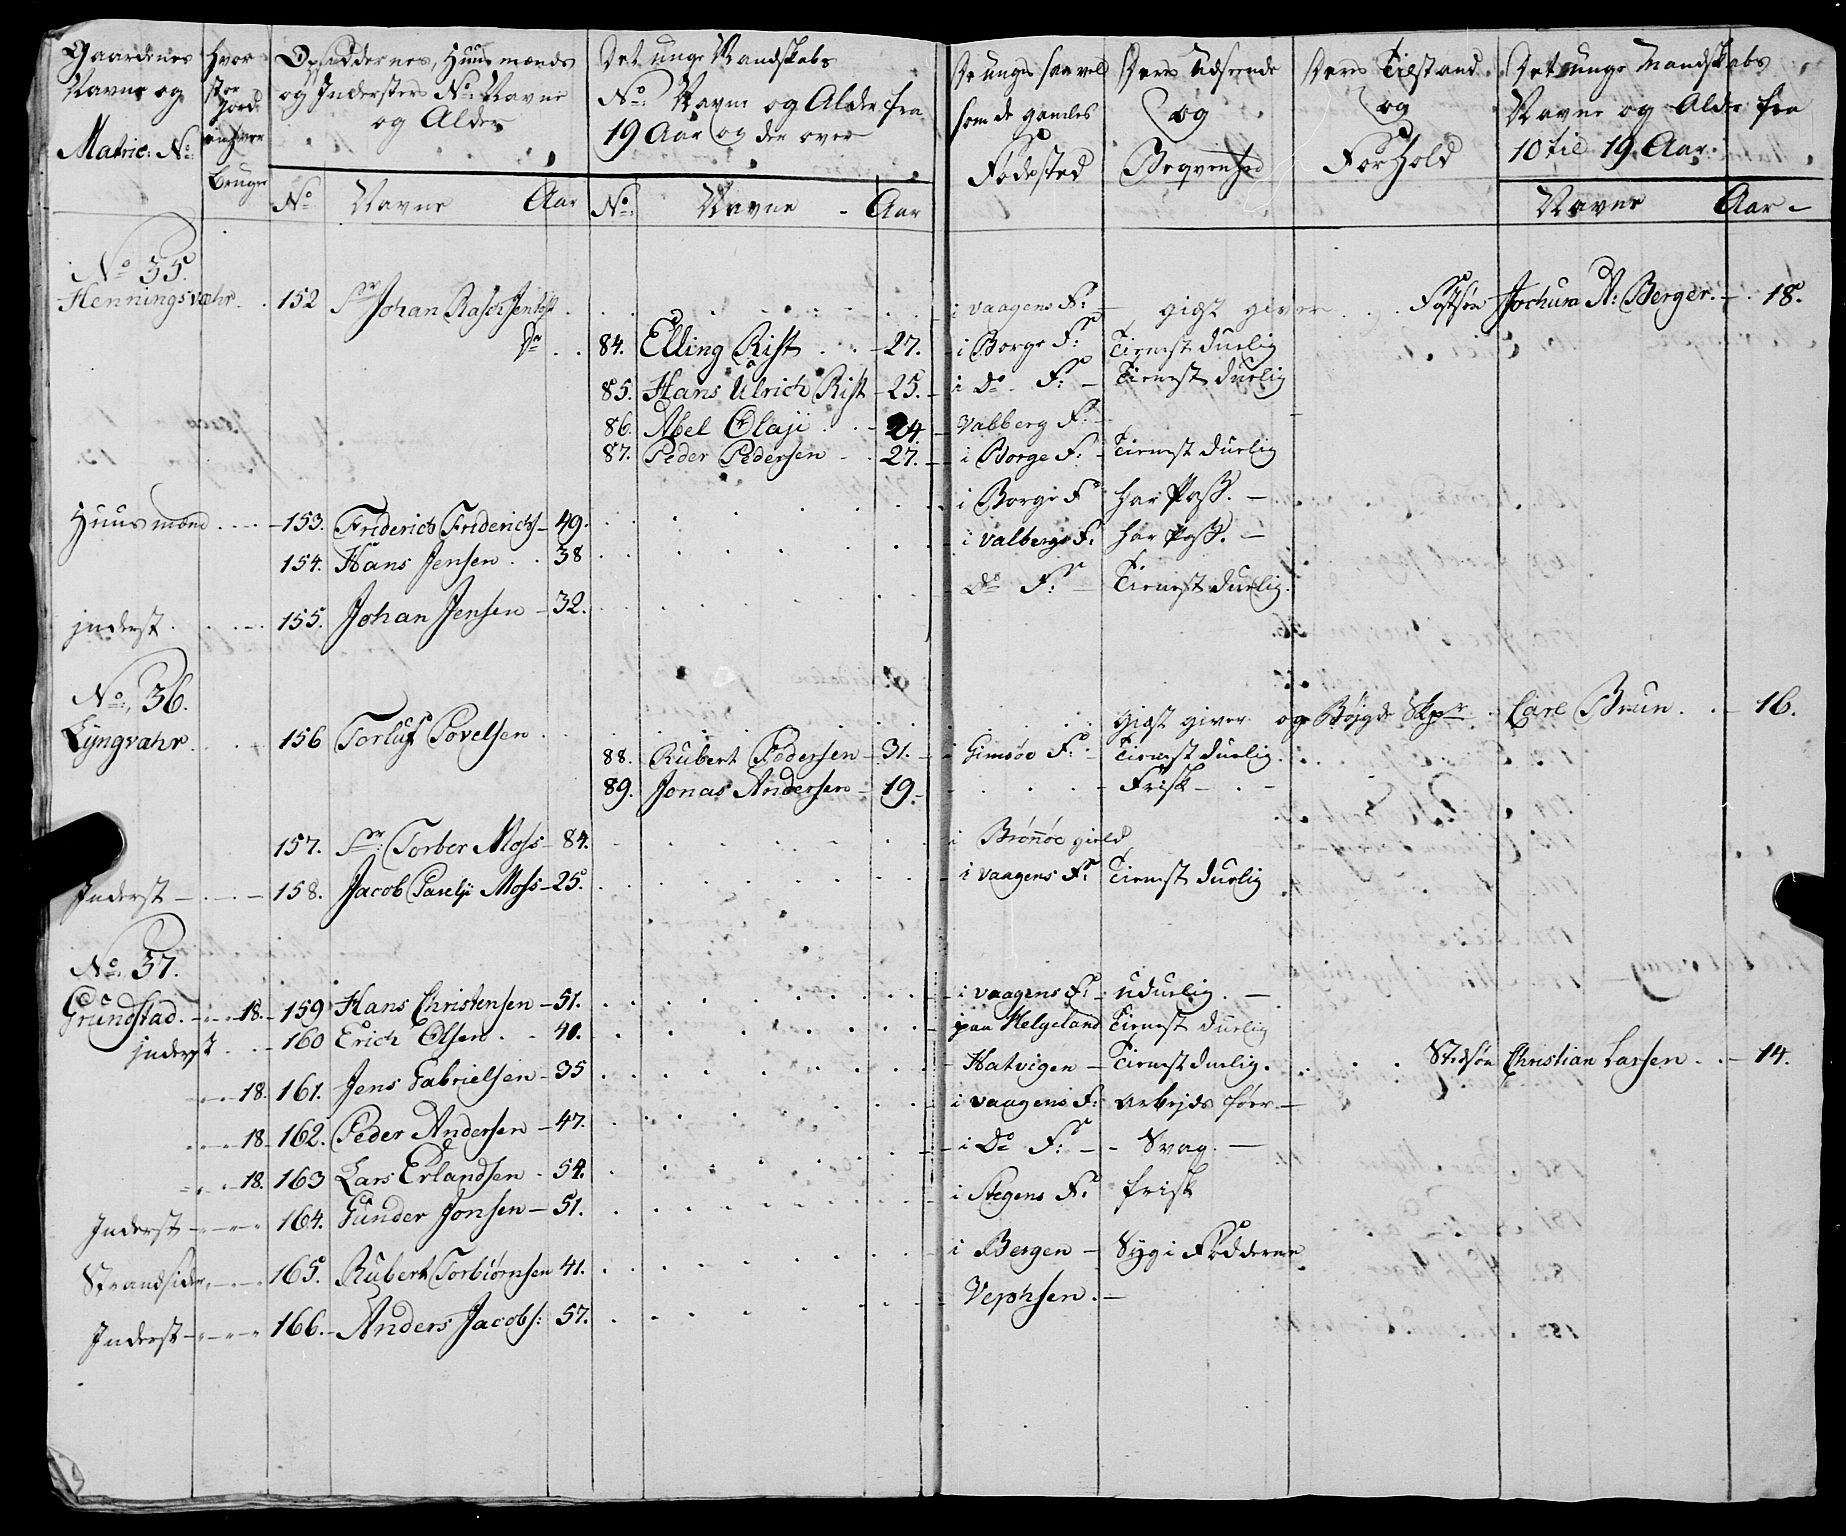 Gaardenes Navne og Matric: No:
Hvor stor Jord enhver bruger
Opsiddernes, Huusmænds og Indersters No: Navne og Alder
Det unge Mandskabs No: Navne og Alder fra 19 Aar og der over
De unges saavel som de gamles Fødested
Deres Udseende og Beqvemhed
Deres Tilstand og Forhold
Det unge Mandskabs Navne og Alder fra 10 til 19 Aar.
No Navne Aar No: Navne - Aar Navne Aar -
No 35.
Henningsvæhr. 152 Sr Johan Rasch i Vaagens Fr: giæst giver Jochum A: Berger. - 18.
Dr 84. Elling Rist - 27. - i Borge Fr: Tienest duelig
85. Hans Ulrich Rist - 25. - i Do Fr: - Tienest duelig
86. Abel Olaji - 24 - Valberg Fr: -
87. Peder Pedersen - 27. - i Borge Fr: - Tienest duelig
Huusmænd - 153. Friderich Friderichs - 49. i Borge Fr har Pass. -
154. Hans Jensen 38 i Valbergs Fr: har Pass. -
jnderst - 155. Johan Jensen - 32. Do Fr: - Tienest duelig.
No: 36.
Lyngvæhr. 156 Torluf Povelsen giæst giver og Bøjgde Skpr Carl Brun - 16.
88. Rubert Pedersen - 31. - Gimsøe Fr: - Tienest duelig.
89. Jonas Andersen - 19. - Frisk -
157. Sr: Torber Moss - 84. i Brønøe gield
Inderst - 158. Jacob Moss - 25. - i Vaagens Fr: Tienest duelig
No. 37.
Grundstad. - 18. - 159 Hans Christensen - 51. - i Vaagens Fr: - uduelig. -
jnderst - 160 Erich Olsen 40. - paa Helgeland Tienest duelig
18. 161. Jens Gabrielsen - 35 - Hatvigen - Tienest duelig. Stedsøn Christian Larsen - 14.
18 - 162. Peder Andersen - 47. - i Vaagens Fr: Arbejds føer. -
18. 163 Lars Erlandsen - 54. - i Do Fr: - - Svag. -
Inderst - 164. Gunder Jonsen - 51. i Stegens Fr: frisk
Strandsider. - 165. Rubert Torbiørnsen 41. i Bergen - Syg i Fødderne
Inderst - 166. - Anders Jacobs: 57. - Vephsen. -